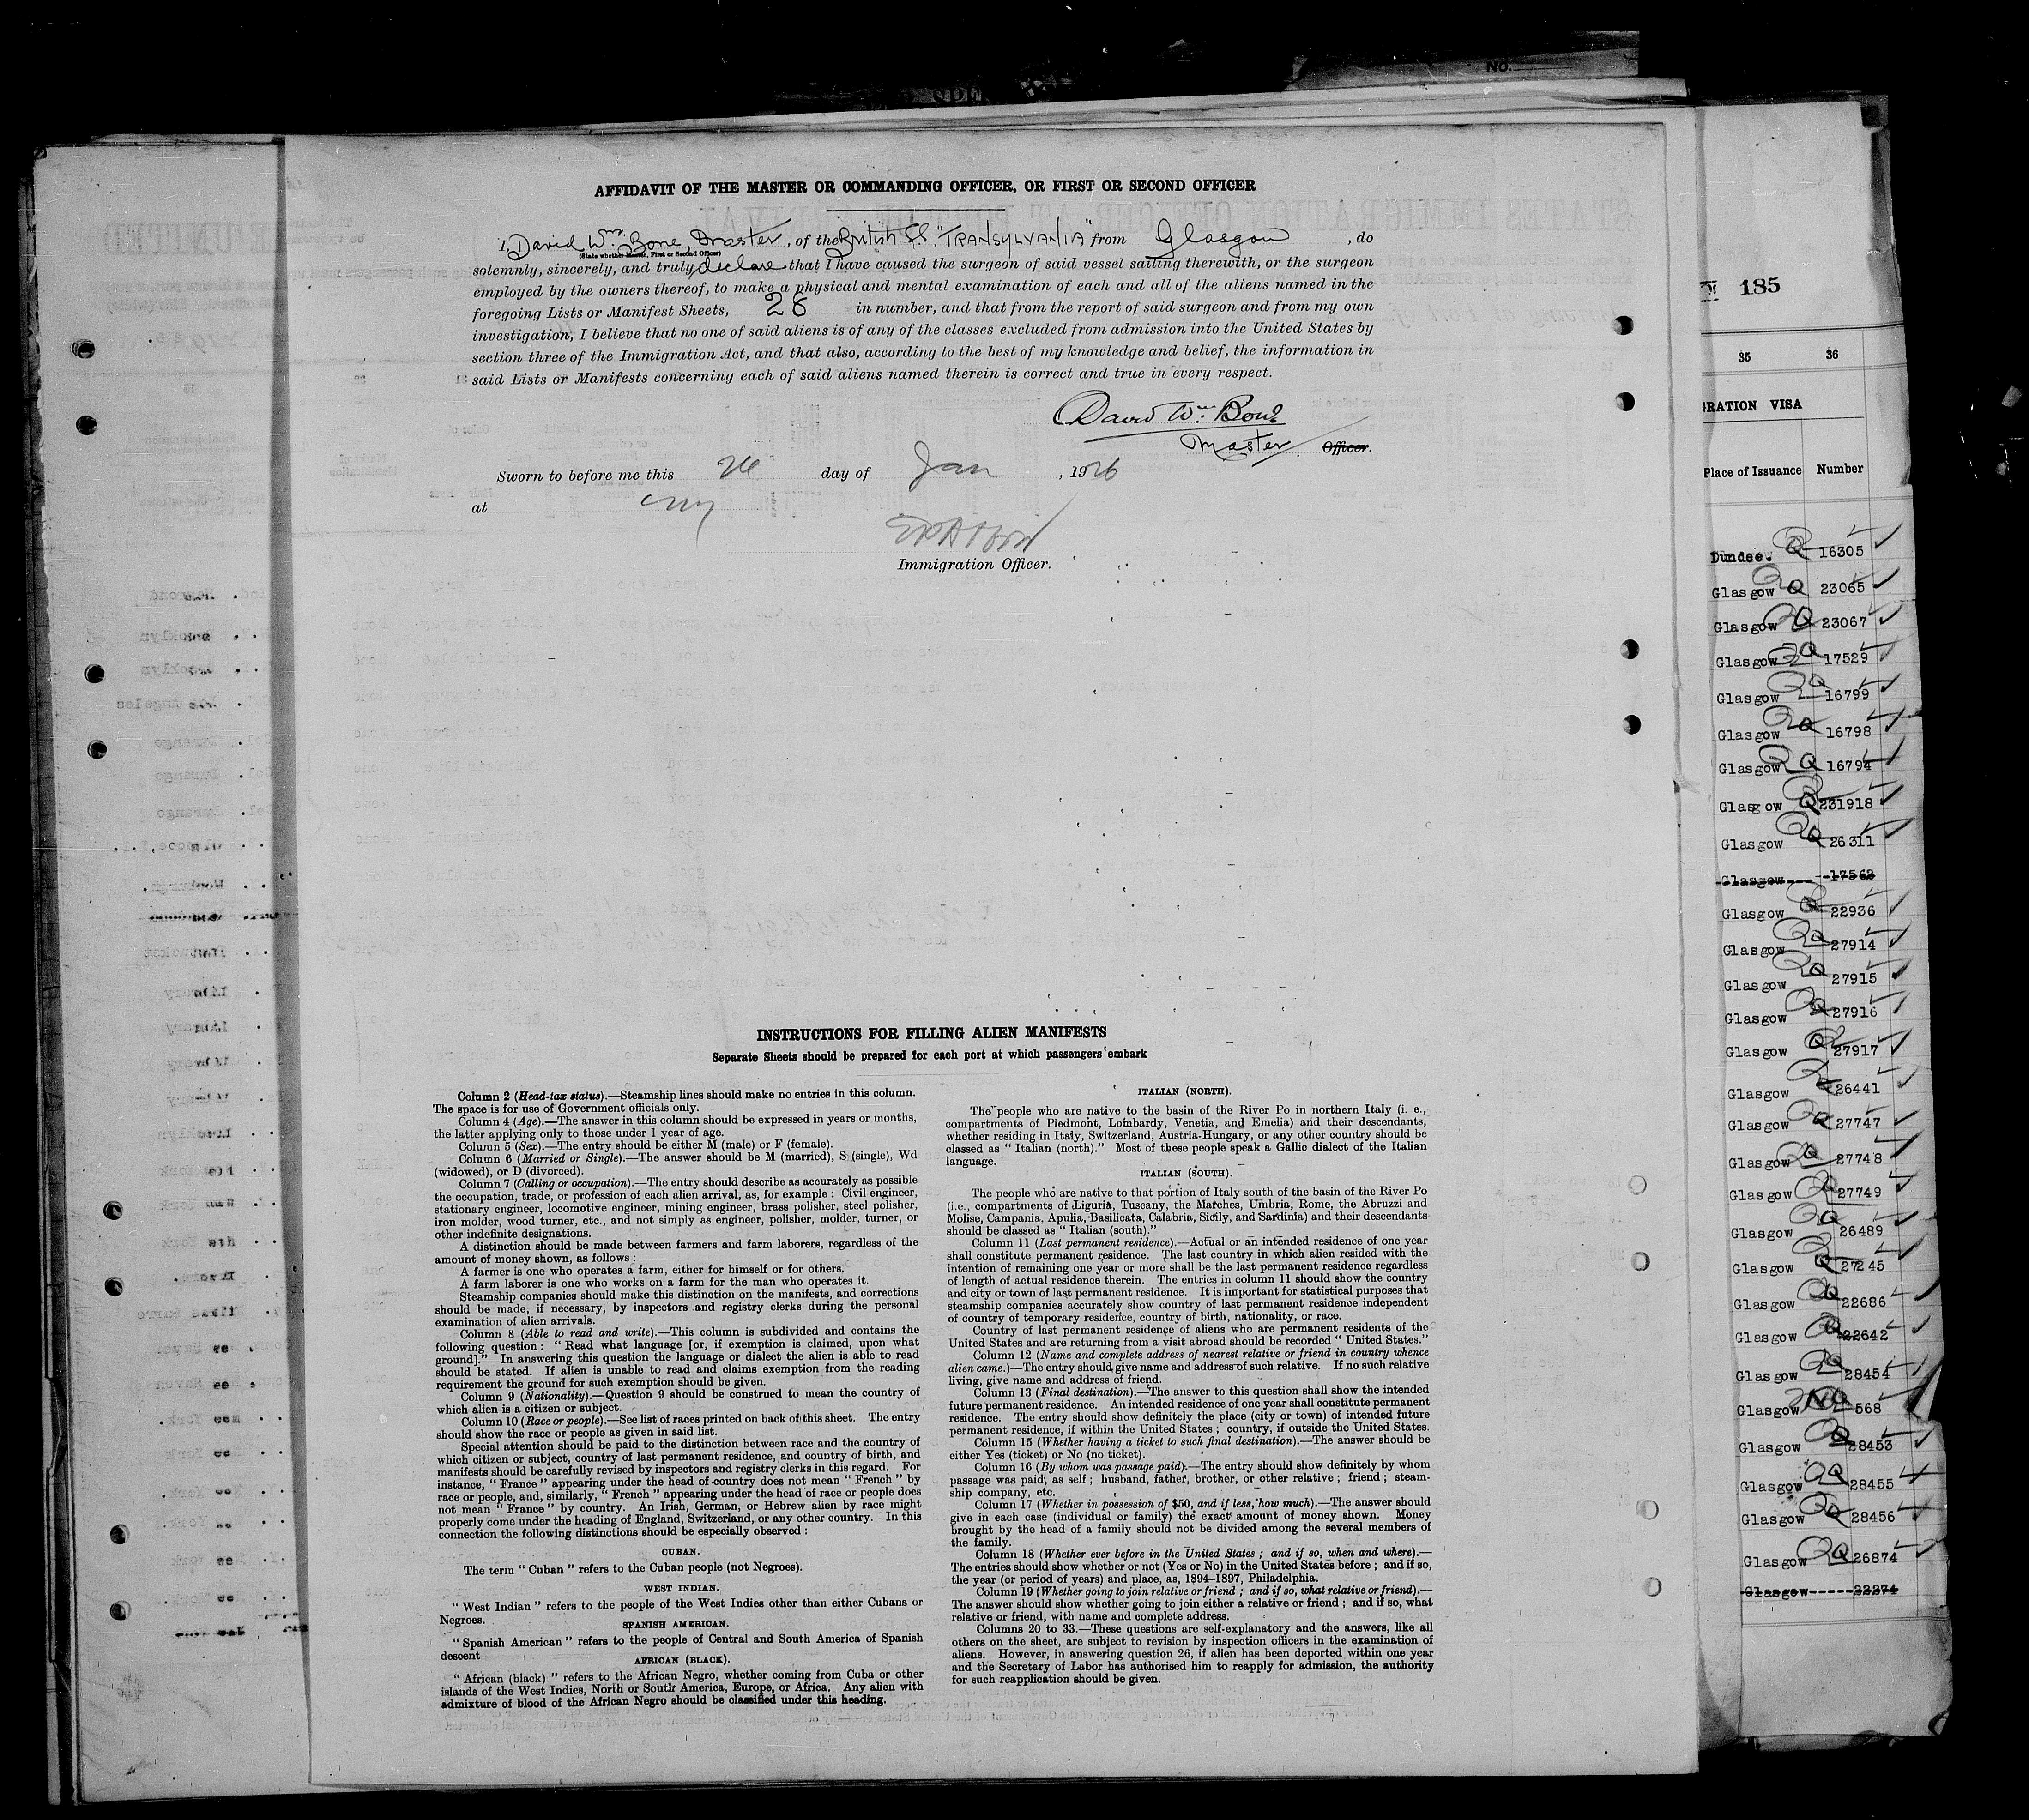 NO.
AFFIDAVIT OF THE MASTER OR COMMANDING OFFICER, OR FIRST OR SECOND OFFICER
I, David Wm. Bone, Master, of the British S.S. "TRANSYLVANIA" from Glasgow, do
(State whether Master, First or Second Officer)
solemnly, sincerely, and truly declare that I have caused the surgeon of said vessel sailing therewith, or the surgeon
employed by the owners thereof, to make a physical and mental examination of each and all of the aliens named in the
foregoing Lists or Manifest Sheets, 28 in number, and that from the report of said surgeon and from my own
investigation, I believe that no one of said aliens is of any of the classes excluded from admission into the United States by
section three of the Immigration Act, and that also, according to the best of my knowledge and belief, the information in
said Lists or Manifests concerning each of said aliens named therein is correct and true in every respect.
David Wm. Bone
Master Officer.
Sworn to before me this 26 day of Jan, 1926
at NY
Immigration Officer.
INSTRUCTIONS FOR FILLING ALIEN MANIFESTS
Separate Sheets should be prepared for each port at which passengers embark
Column 2 (Head-tax status).—Steamship lines should make no entries in this column.
The space is for use of Government officials only.
Column 4 (Age).—The answer in this column should be expressed in years or months,
the latter applying only to those under 1 year of age.
Column 5 (Sex).—The entry should be either M (male) or F (female).
Column 6 (Married or Single).—The answer should be M (married), S (single), Wd
(widowed), or D (divorced).
Column 7 (Calling or occupation).—The entry should describe as accurately as possible
the occupation, trade, or profession of each alien arrival, as, for example : Civil engineer,
stationary engineer, locomotive engineer, mining engineer, brass polisher, steel polisher,
iron molder, wood turner, etc., and not simply as engineer, polisher, molder, turner, or
other indefinite designations.
A distinction should be made between farmers and farm laborers, regardless of the
amount of money shown, as follows :
A farmer is one who operates a farm, either for himself or for others.
A farm laborer is one who works on a farm for the man who operates it.
Steamship companies should make this distinction on the manifests, and corrections
should be made, if necessary, by inspectors and registry clerks during the personal
examination of alien arrivals.
Column 8 (Able to read and write).—This column is subdivided and contains the
following question : " Read what language [or, if exemption is claimed, upon what
ground]." In answering this question the language or dialect the alien is able to read
should be stated. If alien is unable to read and claims exemption from the reading
requirement the ground for such exemption should be given.
Column 9 (Nationality).—Question 9 should be construed to mean the country of
which alien is a citizen or subject.
Column 10 (Race or people).—See list of races printed on back of this sheet. The entry
should show the race or people as given in said list.
Special attention should be paid to the distinction between race and the country of
which citizen or subject, country of last permanent residence, and country of birth, and
manifests should be carefully revised by inspectors and registry clerks in this regard. For
instance, " France " appearing under the head of country does not mean " French " by
race or people, and, similarly, " French " appearing under the head of race or people does
not mean " France " by country. An Irish, German, or Hebrew alien by race might
properly come under the heading of England, Switzerland, or any other country. In this
connection the following distinctions should be especially observed :
CUBAN.
The term " Cuban " refers to the Cuban people (not Negroes).
WEST INDIAN.
" West Indian " refers to the people of the West Indies other than either Cubans or
Negroes.
SPANISH AMERICAN.
" Spanish American " refers to the people of Central and South America of Spanish
descent
AFRICAN (BLACK).
" African (black) " refers to the African Negro, whether coming from Cuba or other
islands of the West Indies, North or South America, Europe, or Africa. Any alien with
admixture of blood of the African Negro should be classified under this heading.
ITALIAN (NORTH).
The people who are native to the basin of the River Po in northern Italy (i. e.,
compartments of Piedmont, Lombardy, Venetia, and Emelia) and their descendants,
whether residing in Italy, Switzerland, Austria-Hungary, or any other country should be
classed as " Italian (north)." Most of these people speak a Gallic dialect of the Italian
language.
ITALIAN (SOUTH).
The people who are native to that portion of Italy south of the basin of the River Po
(i.e., compartments of Liguria, Tuscany, the Marches, Umbria, Rome, the Abruzzi and
Molise, Campania, Apulia, Basilicata, Calabria, Sicily, and Sardinia) and their descendants
should be classed as " Italian (south)."
Column 11 (Last permanent residence).—Actual or an intended residence of one year
shall constitute permanent residence. The last country in which alien resided with the
intention of remaining one year or more shall be the last permanent residence regardless
of length of actual residence therein. The entries in column 11 should show the country
and city or town of last permanent residence. It is important for statistical purposes that
steamship companies accurately show country of last permanent residence independent
of country of temporary residence, country of birth, nationality, or race.
Country of last permanent residence of aliens who are permanent residents of the
United States and are returning from a visit abroad should be recorded " United States."
Column 12 (Name and complete address of nearest relative or friend in country whence
alien came.)—The entry should give name and address of such relative. If no such relative
living, give name and address of friend.
Column 13 (Final destination).—The answer to this question shall show the intended
future permanent residence. An intended residence of one year shall constitute permanent
residence. The entry should show definitely the place (city or town) of intended future
permanent residence, if within the United States ; country, if outside the United States.
Column 15 (Whether having a ticket to such final destination).—The answer should be
either Yes (ticket) or No (no ticket).
Column 16 (By whom was passage paid).—The entry should show definitely by whom
passage was paid; as self ; husband, father, brother, or other relative ; friend ; steam-
ship company, etc.
Column 17 (Whether in possession of $50, and if less, how much).—The answer should
give in each case (individual or family) the exact amount of money shown. Money
brought by the head of a family should not be divided among the several members of
the family.
Column 18 (Whether ever before in the United States ; and if so, when and where).—
The entries should show whether or not (Yes or No) in the United States before ; and if so,
the year (or period of years) and place, as, 1894–1897, Philadelphia.
Column 19 (Whether going to join relative or friend ; and if so, what relative or friend).—
The answer should show whether going to join either a relative or friend ; and if so, what
relative or friend, with name and complete address.
Columns 20 to 33.—These questions are self-explanatory and the answers, like all
others on the sheet, are subject to revision by inspection officers in the examination of
aliens. However, in answering question 26, if alien has been deported within one year
and the Secretary of Labor has authorised him to reapply for admission, the authority
for such reapplication should be given.
185
35 36
GRATION VISA
Place of Issuance Number
Dundee. Q 16305
Glasgow Q 23065
Glasgow Q 23067
Glasgow Q 17529
Glasgow Q 16799
Glasgow Q 16798
Glasgow Q 16794
Glasgow Q 231918
Glasgow Q 26311
Glasgow 17562
Glasgow Q 22936
Glasgow Q 27914
Glasgow Q 27915
Glasgow Q 27916
Glasgow Q 27917
Glasgow Q 26441
Glasgow Q 27747
Glasgow Q 27748
Glasgow Q 27749
Glasgow Q 26489
Glasgow Q 27245
Glasgow Q 22686
Glasgow Q 22642
Glasgow Q 28454
Glasgow NQ 568
Glasgow Q 28453
Glasgow Q 28455
Glasgow Q 28456
Glasgow Q 26874
Glasgow 22274